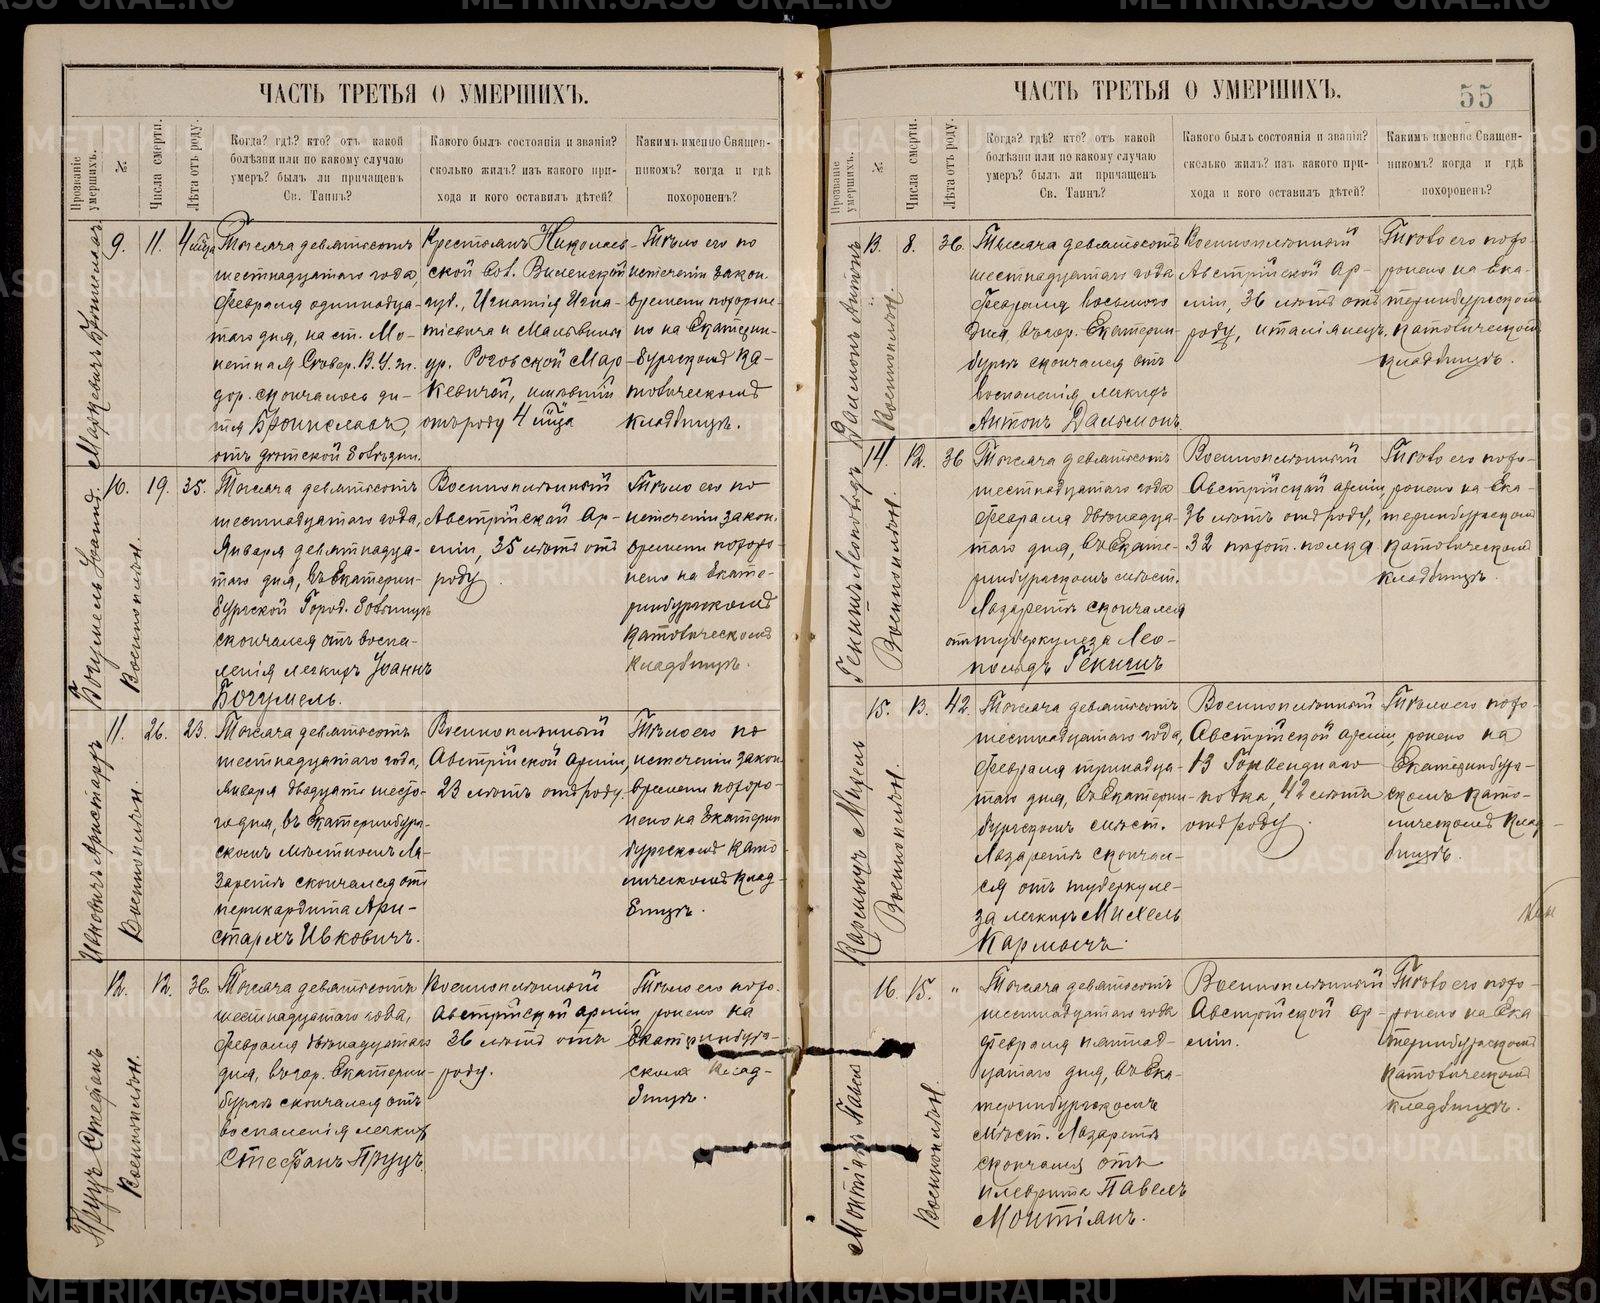 ЧАСТЬ ТРЕТЬЯ О УМЕРШИХЪ.
Прозваніе умершихъ.
№
Числа смерти.
Лѣта отъ роду.
Когда? гдѣ? кто? отъ какой
болѣзни или по какому случаю
умеръ? былъ ли причащенъ
Св. Таинъ?
Какого былъ состоянія и званія?
сколько жилъ? изъ какого при-
хода и кого оставилъ дѣтей?
Какимъ именно Священ-
никомъ? когда и гдѣ
похороненъ?
Маркевичъ Брониславъ
9.
11.
4 мѣца
Тысяча девятьсотъ
шестнадцатаго года,
Февраля одинадца-
таго дня, на ст. Мо-
нетная Сѣвер. В. У. ж.
дор. скончалось ди-
тя Брониславъ,
отъ дѣтской болѣзни.
Крестьянъ Николаев-
ской вол. Виленской
губ., Игнатія Игна-
тіевича и Мальвины
ур. Роговской Мар-
кевичей, имѣвшій
отъ роду 4 мѣца
Тѣло его по
истеченіи закон.
времени похороне-
но на Екатерин-
бургскомъ Ка-
толическомъ
кладбищѣ.
Богумель Іоаннъ.
Военноплѣн.
10.
19.
35.
Тысяча девятьсотъ
шестнадцатаго года,
Января девятнадца-
таго дня, въ Екатерин-
бургской Город. больницѣ
скончался отъ воспа-
ленія легкихъ Іоаннъ
Богумель.
Военноплѣнный
Австрійской Ар-
міи, 35 лѣтъ отъ
роду.
Тѣло его по
истеченіи закон.
времени похоро-
нено на Екате-
ринбургскомъ
Католическомъ
кладбищѣ.
Ивковичъ Аристархъ
Военноплѣн.
11.
26.
23.
Тысяча девятьсотъ
шестнадцатаго года,
Января двадцать шесто-
го дня, въ Екатеринбург-
скомъ мѣстномъ Ла-
заретѣ скончался отъ
перикардита Ари-
стархъ Ивковичъ.
Военноплѣнный
Австрійской арміи,
23 лѣтъ отъ роду.
Тѣло его по
истеченіи закон.
времени похоро-
нено на Екатерин
бургскомъ Като-
лическомъ Клад-
бищѣ.
Пруцъ Стефанъ
Военноплѣн.
12.
12.
36.
Тысяча девятьсотъ
шестнадцатаго года,
Февраля двѣнадцатаго
дня, въ гор. Екатерин-
бургѣ скончался отъ
воспаленія легкихъ
Стефанъ Пруцъ.
Военноплѣнный
Австрійской арміи,
36 лѣтъ отъ
роду.
Тѣло его похо-
ронено на
Екатеринбург-
скомъ Клад-
бищѣ.
ЧАСТЬ ТРЕТЬЯ О УМЕРШИХЪ.
55
Прозваніе умершихъ.
№
Числа смерти.
Лѣта отъ роду.
Когда? гдѣ? кто? отъ какой
болѣзни или по какому случаю
умеръ? былъ ли причащенъ
Св. Таинъ?
Какого былъ состоянія и званія?
сколько жилъ? изъ какого при-
хода и кого оставилъ дѣтей?
Какимъ именно Священ-
никомъ? когда и гдѣ
похороненъ?
Дальмонъ Антонъ
Военноплѣн.
13.
8.
36.
Тысяча девятьсотъ
шестнадцатаго года
Февраля восьмого
дня въ гор. Екатерин-
бургѣ скончался отъ
воспаленія легкихъ
Антонъ Дальмонъ.
Военноплѣнный
Австрійской Ар-
міи, 36 лѣтъ отъ
роду, итальянецъ.
Тѣло его похо-
ронено на Ека-
теринбургскомъ
Католическомъ
кладбищѣ.
Военноплѣн.
14.
12.
36
Тысяча девятьсотъ
шестнадцатаго года
Февраля двѣнадца-
таго дня, въ Екате-
ринбургскомъ мѣст.
Лазаретѣ скончался
отъ туберкулеза Лео-
польдъ
Военноплѣнный
Австрійской арміи,
36 лѣтъ отъ роду,
32 пѣхот. полка
Тѣло его похо-
ронено на Ека-
теринбургскомъ
Католическомъ
кладбищѣ.
Кармычъ Михель
Военноплѣн.
15.
13.
42.
Тысяча девятьсотъ
шестнадцатаго года,
Февраля тринадца-
таго дня, въ Екатерин-
бургскомъ мѣст.
Лазаретѣ скончал-
ся отъ туберкуле-
за легкихъ Михель
Кармычъ.
Военноплѣнный
Австрійской арміи,
13 Гонведнаго
полка, 42 лѣтъ
отъ роду.
Тѣло его похо-
ронено на
Екатеринбург-
скомъ Като-
лическомъ Клад-
бищѣ.
Монтіанъ Павелъ
Военноплѣн.
16.
15.
"
Тысяча девятьсотъ
шестнадцатаго года
Февраля пятнад-
цатаго дня, въ Ека-
теринбургскомъ
мѣст. Лазаретѣ
скончался отъ
плеврита Павелъ
Монтіанъ.
Военноплѣнный
Австрійской ар-
міи.
Тѣло его похо-
ронено на Ека
теринбургскомъ
Католическомъ
кладбищѣ.
METRIKI.GASO-URAL.RU